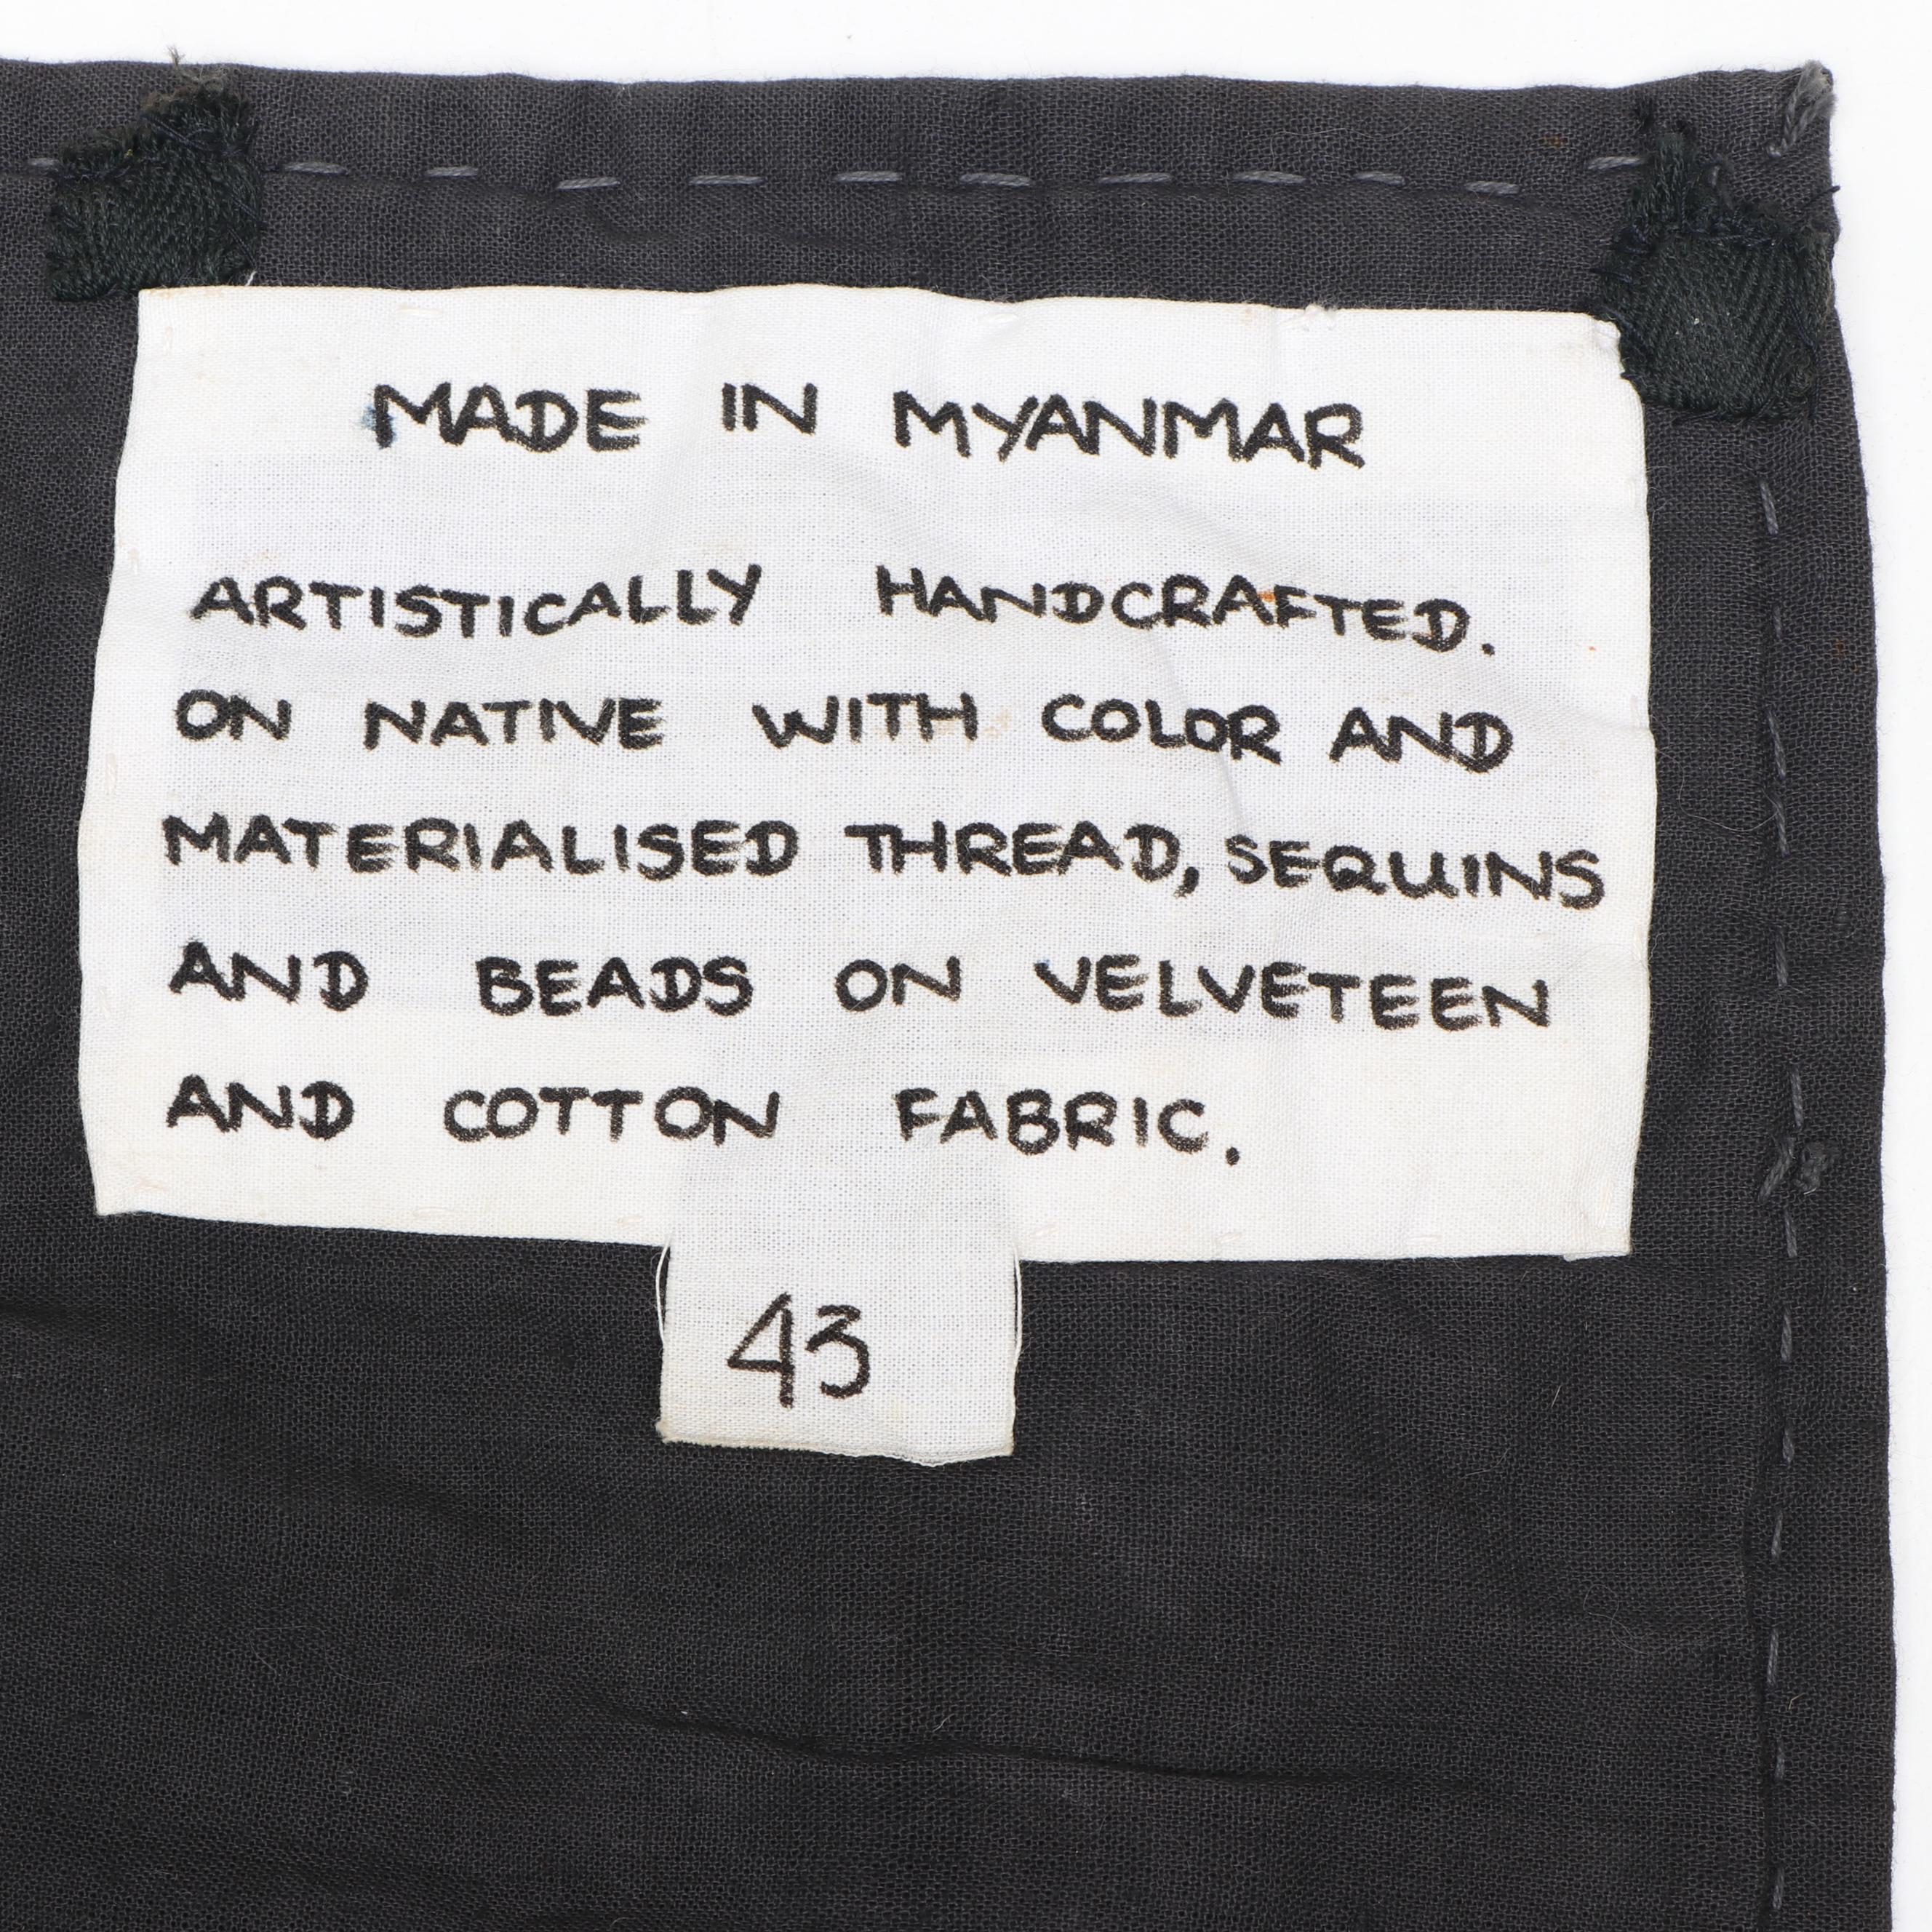 MADE IN MYANMAR
ARTISTICALLY HANDCRAFTED.
ON NATIVE WITH COLOR AND
MATERIALISED THREAD, SEQUINS
AND BEADS ON VELVETEEN
AND COTTON FABRIC.
43